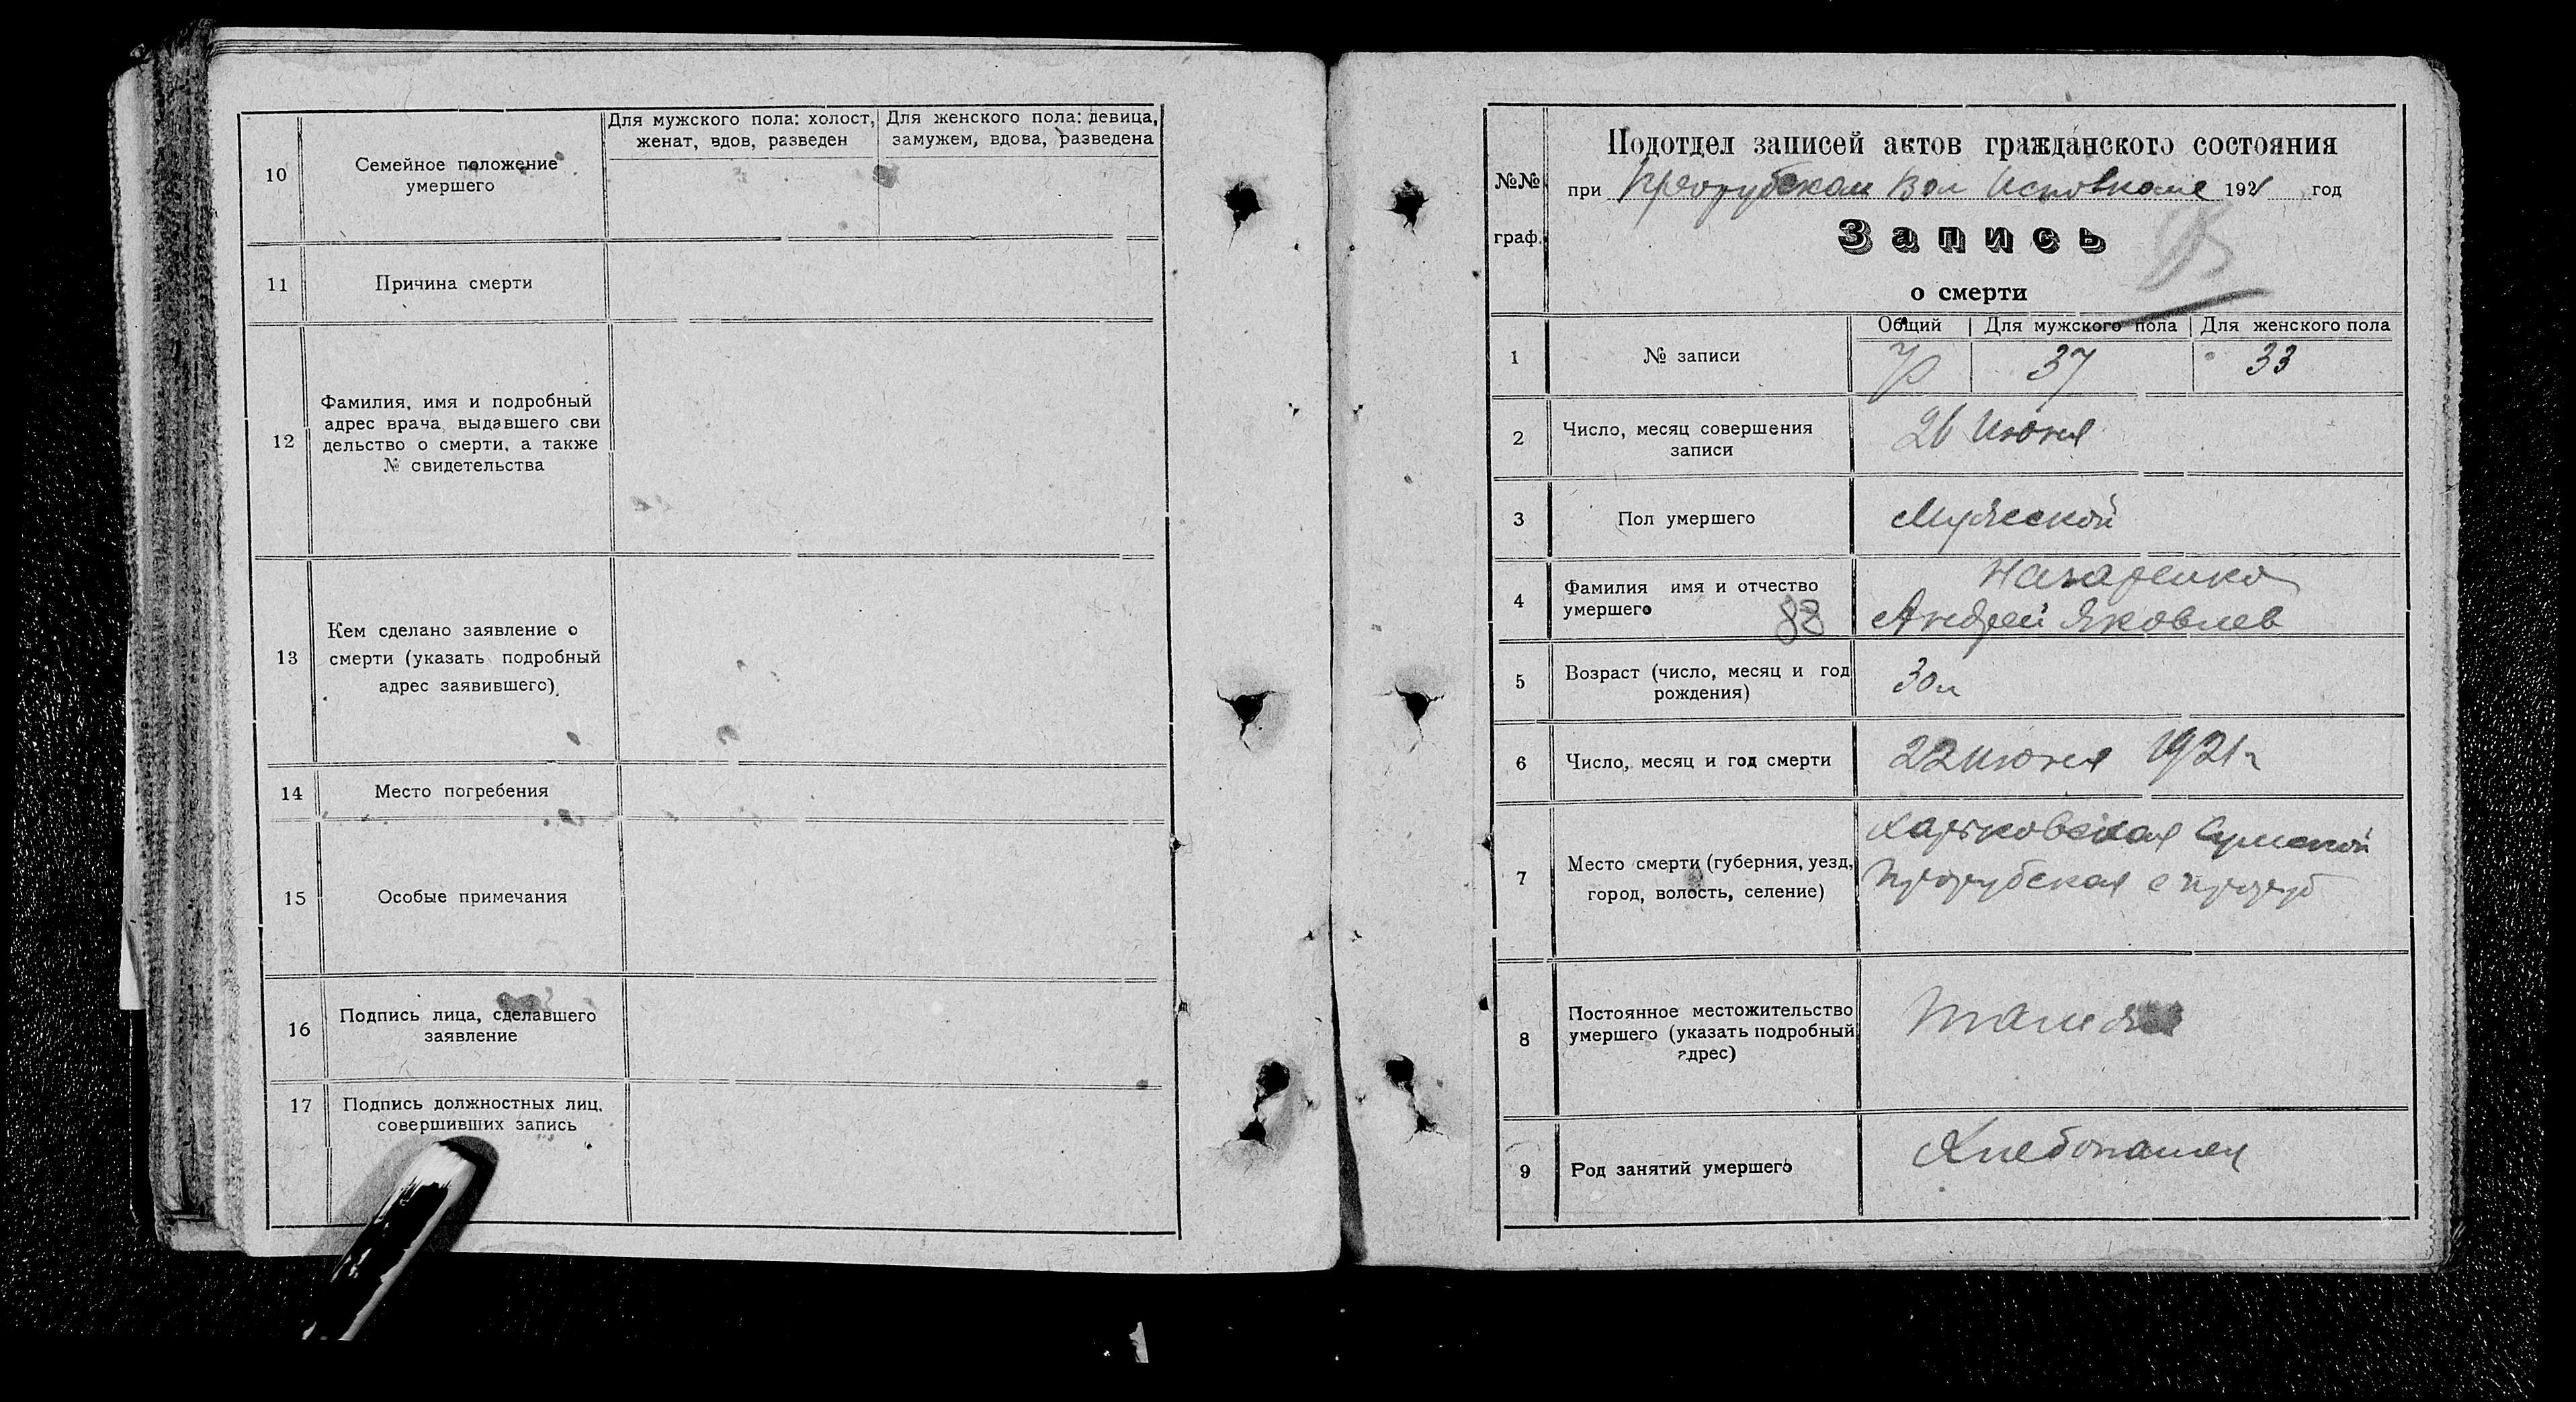 10
Семейное положение
умершего
Для мужского пола: холост,
женат, вдов, разведен
Для женского пола: девица,
замужем, вдова, разведена
11
Причина смерти
12
Фамилия, имя и подробный
адрес врача, выдавшего сви
дельство о смерти, а также
№ свидетельства
13
Кем сделано заявление о
смерти (указать подробный
адрес заявившего)
14
Место погребения
15
Особые примечания
16
Подпись лица, сделавшего
заявление
17
Подпись должностных лиц,
совершивших запись
№№
граф.
Подотдел записей актов гражданского состояния
при Вол Исполкоме 1921 год
Запись
о смерти
1
№ записи
Общий
Для мужского пола
Для женского пола
70
37
33
2
Число, месяц совершения
записи
26 июня
3
Пол умершего
Мужской
4
Фамилия имя и отчество
умершего
88
Назаренко
Андрей Яковлев
5
Возраст (число, месяц и год
рождения)
30 л
6
Число, месяц и год смерти
22 июня 1921 г
7
Место смерти (губерния, уезд,
город, волость, селение)
Харьковская Сумской
8
Постоянное местожительство
умершего (указать подробный
адрес)
9
Род занятий умершего
Хлебопашец